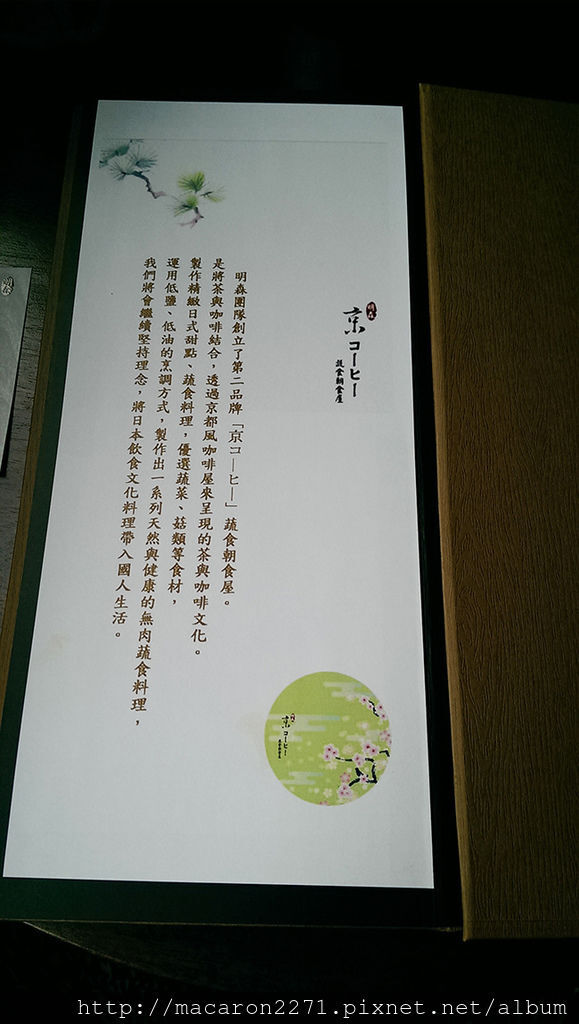 明森
京コーヒー
蔬食朝食屋
明森團隊創立了第二品牌「京コーヒー」蔬食朝食屋。
是將茶與咖啡結合，透過京都風咖啡屋來呈現的茶與咖啡文化。
製作精緻日式甜點、蔬食料理，優選蔬菜、菇類等食材，
運用低鹽、低油的烹調方式，製作出一系列天然與健康的無肉蔬食料理，
我們將會繼續堅持理念，將日本飲食文化料理帶入國人生活。
京コーヒー
http://macaron2271.pixnet.net/album